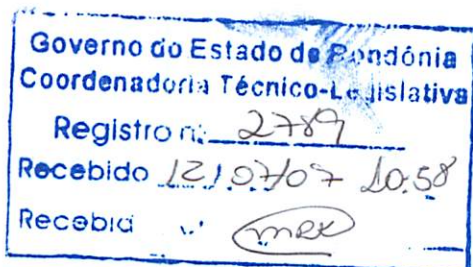 Governo do Estado de Rondônia
Coordenadoria Técnico-Legislativa
Registro n: 2789
Recebido 12/07/07 10:58
Recebid